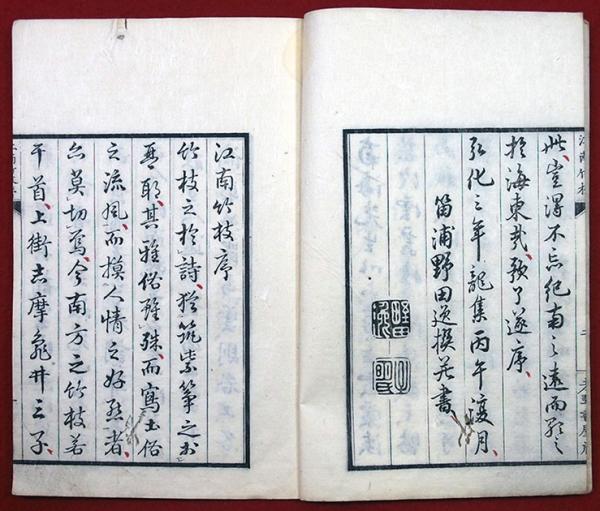 江南竹枝
此、豈得不忘紀南之遠而歌之
於海東哉、歌了遂序、
弘化三年龍集丙午渡月、
笛浦野田逸撰并書
江南竹枝序
竹枝之於詩、猶筑紫箏之於
琴耶、其雅俗雖殊、而寫土俗
之流風、而摸人情之好惡者、
亦莫切焉、今南方之竹枝若
干首、上街志摩龜井三子、